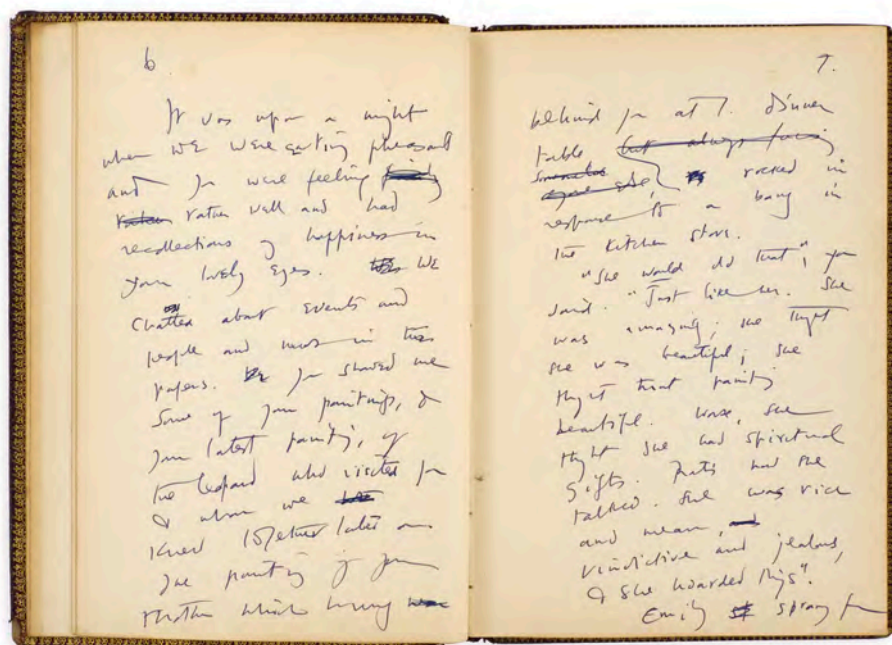 6.
It was upon a night
when we were eating pheasant
and you were feeling
rather rather well and had
recollections of happiness in
your lovely eyes. We
chatted about events and
people and news in the
papers. You showed me
some of your paintings, &
your latest painting, of
the leopard who visited you
& whom we
knew together later on.
The painting of your
mother which hung
7.
behind you at T. dinner
table but always facing
someone else, rocked in
response to a bang in
the kitchen stove.
"She would do that", you
said. "Just like her. She
was amazing; she thought
she was beautiful; she
thought that painting
beautiful. Worse, she
thought she had spiritual
gifts. That's how she
talked. She was rich
and mean, and
vindictive and jealous,
& she hoarded things".
Emily sprang from